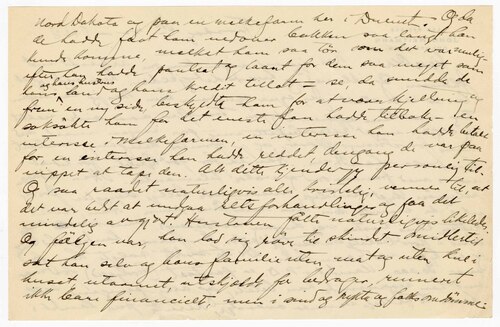 Nord Dakota og paa en melkefarm her i Duluth. Og da
de hadde faat ham nedover bakken saa langt han
kunde komme melket ham saa tør som det var mulig
efter han hadde pantsat og laant for dem saa meget som
hans og hans hustrus land og hans kredit tillot – se, da snudde de
frem en ny side, beskyldte ham for at være kjeltring og
saksøkte ham for det meste han hadde tilbake – en
interesse i melkefarmen, en interesse han hadde betalt
for, en interesse han hadde reddet, dengang de var paa
nippet at tape den. Alt dette kjender jeg personlig til.
Og saa raadet naturligvis alle, hvislig, venner til, at
det var bedst at undgaa retsforhandlinger og faa det
mindelig avgjort. Hustruen følte naturligvis likeledes.
Og følgen var, han lod sig røve til skindet. Imidlertid
sat han selv og hans familie uten mat og uten kul i
huset, utarmet, utskjældt for bedrager, ruineret
ikke bare financielt, men i sind og rygte og folks omdømme.